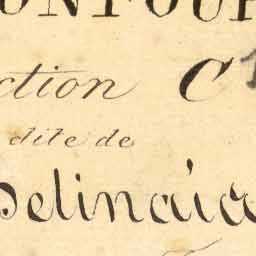 ONFOUR
ction C 1
dite de
selinaia